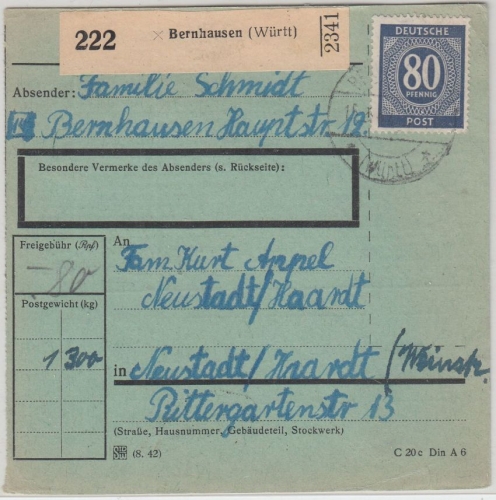 222 × Bernhausen (Württ) 2341
DEUTSCHE
80
PFENNIG
POST
Absender: Familie Schmidt
Bernhausen Hauptstr 12
(Württ)
Besondere Vermerke des Absenders (s. Rückseite):
Freigebühr (Rpf)
-80
Postgewicht (kg)
1 300
An
Fam. Kurt Ampel
Neustadt/Haardt
in Neustadt/Haardt /Weinstr.
Rittergartenstr 13
(Straße, Hausnummer, Gebäudeteil, Stockwerk)
(8. 42)
C 20c Din A 6